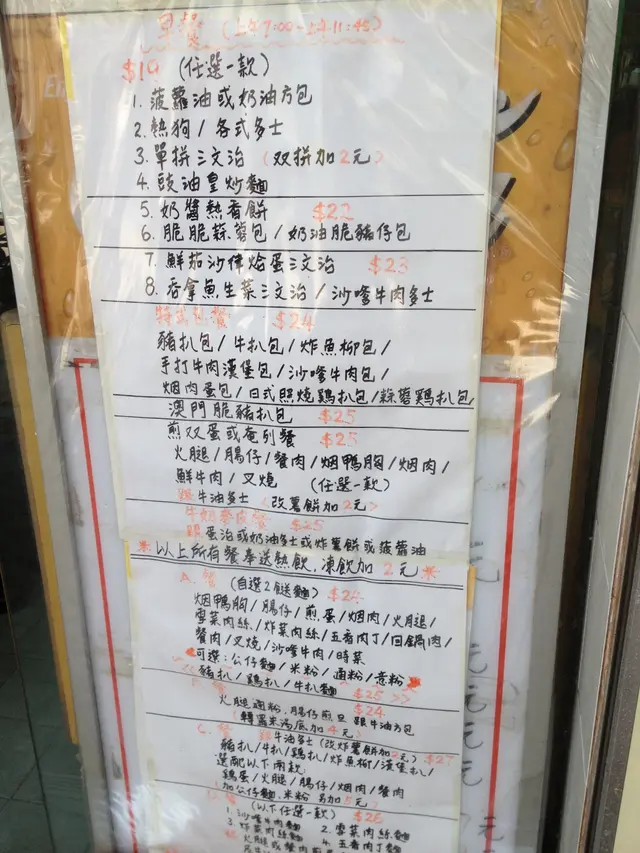 早餐 (上午7:00-上午11:45)
$19 (任選一款)
1. 菠蘿油或奶油方包
2. 熱狗/各式多士
3. 單拼三文治 (双拼加2元)
4. 豉油皇炒麵
5. 奶醬熱香餅 $22
6. 脆脆蒜蓉包/奶油脆豬仔包
7. 鮮茄沙律焓蛋三文治 $23
8. 吞拿魚生菜三文治/沙嗲牛肉多士
特式包餐 $24
豬扒包/牛扒包/炸魚柳包/
手打牛肉漢堡包/沙嗲牛肉包/
烟肉蛋包/日式照燒鷄扒包/蒜蓉鷄扒包
澳門脆豬扒包 $25
煎双蛋或奄列餐 $25
火腿/腸仔/餐肉/烟鴨胸/烟肉/
鮮牛肉/叉燒 (任選一款)
跟牛油多士 (改薯餅加2元)
牛奶麥皮餐 $25
跟蛋治或奶油多士或炸薯餅或菠蘿油
※以上所有餐奉送熱飲,凍飲加2元※
A. 餐 (自選2餸麵) $24
烟鴨胸/腸仔/煎蛋/烟肉/火腿/
雪菜肉絲/炸菜肉絲/五香肉丁/回鍋肉/
餐肉/叉燒/沙嗲牛肉/時菜
可選:公仔麵/米粉/通粉/意粉
豬扒/鷄扒/牛扒麵 $25
餐 $24
火腿通粉,腸仔煎旦 跟牛油方包
加4元)
C. 餐 跟牛油多士(改炸薯餅加2元) $27
豬扒/牛扒/鷄扒/炸魚柳/漢堡扒/
選配以下兩款
鷄蛋/火腿/腸仔/烟肉/餐肉
(加公仔麵,米粉 另加5元)
餐 (以下任選一款) $28
1. 沙嗲牛肉麵 2. 雪菜肉絲麵
3. 炸菜肉絲麵 4. 五香肉丁麵